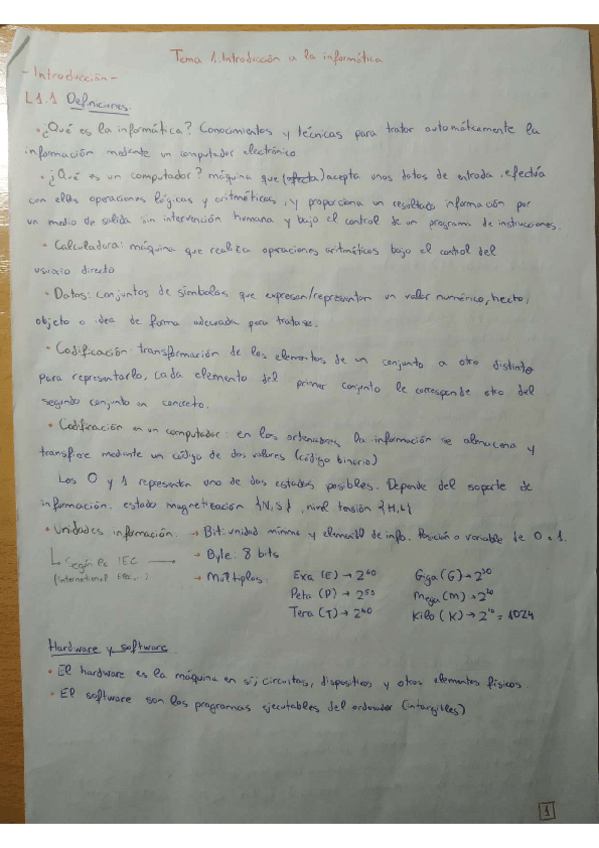 Tema 1. Introducción a la informática
- Introducción -
L1.1 Definiciones.
• ¿Qué es la informática? Conocimientos y técnicas para tratar automáticamente la
información mediante un computador electrónico
• ¿Qué es un computador? máquina que (efecta) acepta unos datos de entrada, efectúa
con ellos operaciones lógicas y aritméticas, y proporciona un resultado información por
un medio de salida sin intervención humana y bajo el control de un programa de instrucciones.
• Calculadora: máquina que realiza operaciones aritméticas bajo el control del
usuario directo
• Datos: conjuntos de símbolos que expresan/representan un valor numérico, hecho,
objeto o idea de forma adecuada para tratarse.
• Codificación: transformación de los elementos de un conjunto a otro distinto
para representarlo, cada elemento del primer conjunto le corresponde otro del
segundo conjunto en concreto.
• Codificación en un computador: en los ordenadores, la información se almacena y
transfiere mediante un código de dos valores (código binario)
Los 0 y 1 representan uno de dos estados posibles. Depende del soporte de
información. estado magnetización {N,S}, nivel tensión {H,L}
• Unidades información. → Bit: unidad mínima y elemental de info. Posición o variable de 0 o 1.
↳ Según la IEC → → Byte: 8 bits
(International Elec...) → Múltiplos: Exa (E) → 2⁶⁰ Giga (G) → 2³⁰
Peta (P) → 2⁵⁰ Mega (M) → 2²⁰
Tera (T) → 2⁴⁰ Kilo (K) → 2¹⁰ = 1024
Hardware y software
• El hardware es la máquina en sí, circuitos, dispositivos y otros elementos físicos.
• El software son los programas ejecutables del ordenador (intangibles)
1